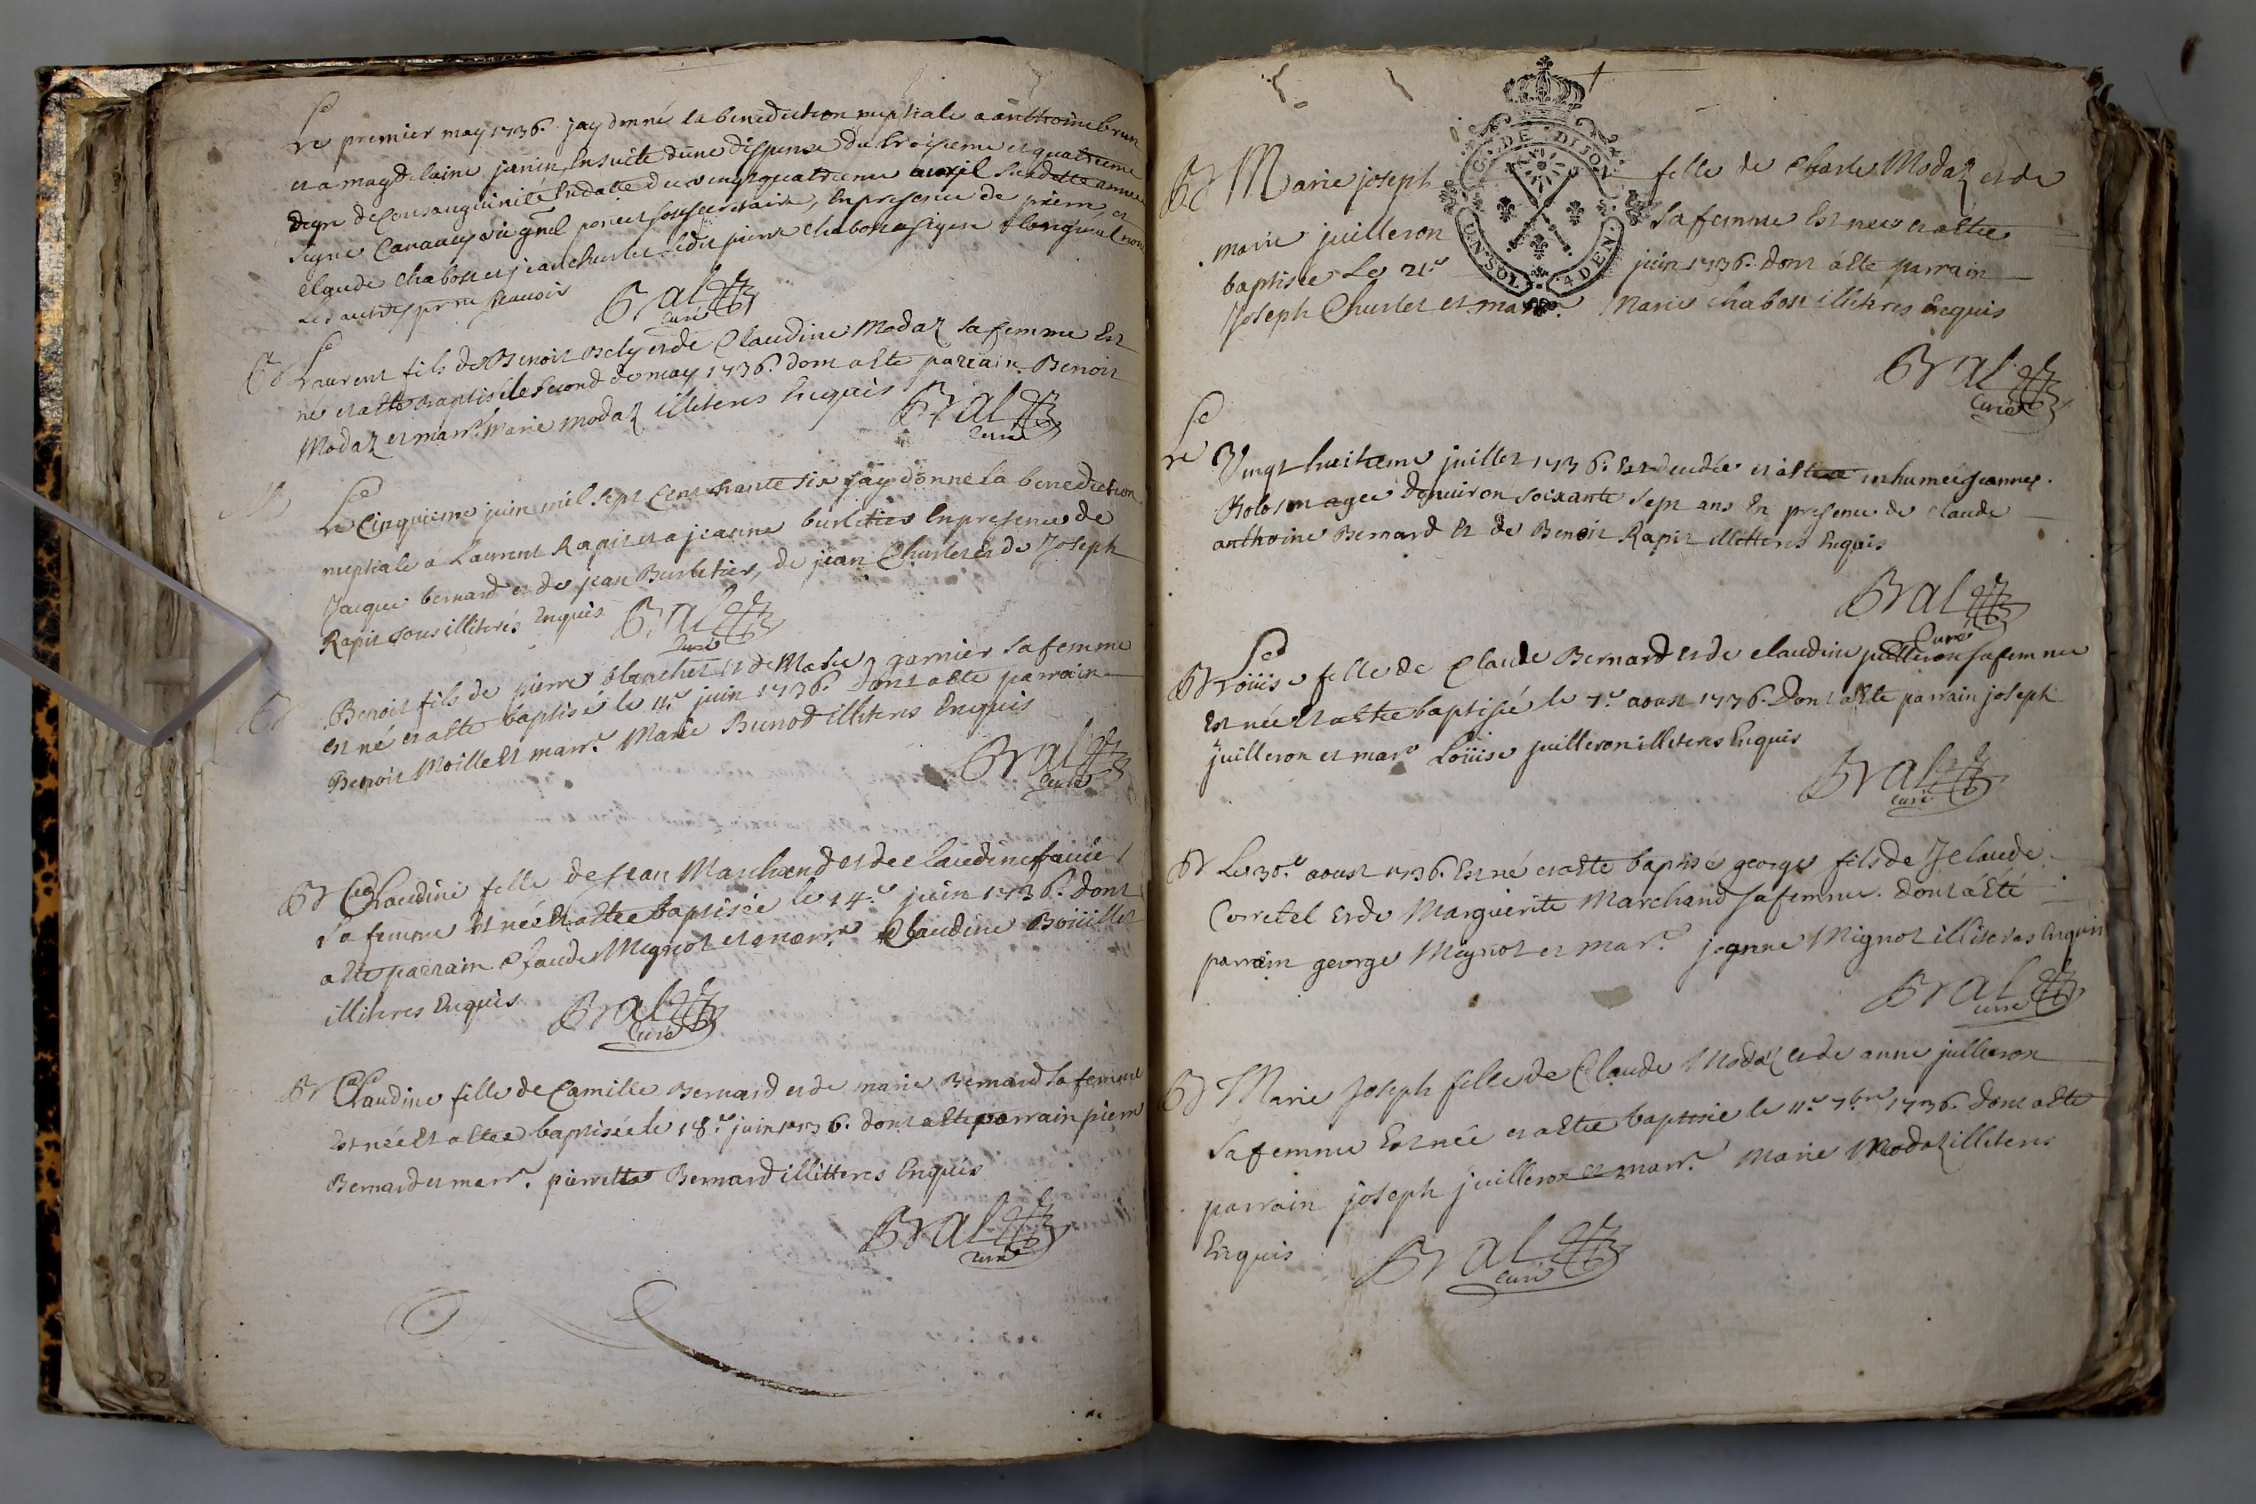 Le premier may 1736. jay donné la benediction nuptiale a anthoine brun
et a magdelaine janin Ensuite dune dispense du troisieme et quatrieme
degre de Consanguinité Endatte du vingtquatrieme avril Susditte année
signe Canauey vic gnel en presence de pierre, et
claude chabon et jean churlet ledit pierre chabon a signe non
les autres pour ne scauoir
Bral
Curé
Bt Laurent fils de Benoit Bely et de Claudine Modaz sa femme Est
né et a este baptisé le second de may 1736. dont a este parrain Benoit
Modaz et marr.e Marie Modaz illiteres Enquis
Bral
Curé
Le Cinquieme juin mil sept Cent trante six jay donné la benediction
nuptiale a Laurent Rapit et a jeanne burletier En presence de
Jacque bernard et de jean Burletier, de jean Churlet et de Joseph
Rapit tous illiterés Enquis
Bral
Curé
Bt Benoit fils de pierre blanchet et de Marie garnier sa femme
est né et a este baptisé le 11.e juin 1736. Dont a este parrain
Benoit Moille et marr.e Marie Bunod illiteres Enquis
Bral
Curé
Bt Claudine fille de Jean Marchand et de claudine
sa femme Est née Et a estee baptisée le 14.e juin 1736. Dont
a este parrain Claude Mignot et marr.e Claudine Boüillet
illiteres Enquis
Bral
Curé
Bt Claudine fille de Camille Bernard et de marie Bernard sa femme
Est née Et a estee baptisée le 18.e juin 1736. dont a este parrain pierre
Bernard et marr.e pierrette Bernard illitteres Enquis
Bral
Curé
G. DE DIJON
UN SOL 4 DEN
Bt Marie joseph fille de Charle Modaz et de
marie juilleron sa femme Est nee et a estee
baptisée Le 21.e juin 1736. dont a este parrain
Joseph Churlet et marr.e Marie chabon illiteres Enquis
Bral
Curé
Le Vingt huitieme juillet 1736. Est decedée et a estee inhumée jeanne
ageé denuiron soixante sept ans En presence de claude
anthoine Bernard Et de Benoit Rapit illitteres Enquis
Bral
Curé
Bt Loüise fille de Claude Bernard et de claudine juilleron sa femme
Est née Et a estee baptisée le 7.e aoust 1736. Dont a este parrain joseph
juilleron et marr.e Loüise juilleron illiteres Enquis
Bral
Curé
Bt Le 30.e aoust 1736. Est né et a este baptisé george fils de claude
Corretel et de Marguerite Marchand sa femme. dont a été
parrain george Mignot et marr.e jeanne Mignot illiteres Enquis
Bral
Curé
Bt Marie Joseph fille de Claude Modaz et de anne julleron
sa femme Est née et a estee baptisée le 11.e 7.bre 1736. Dont a este
parrain joseph juilleron et marr.e Marie Modaz illiteres
Enquis
Bral
Curé